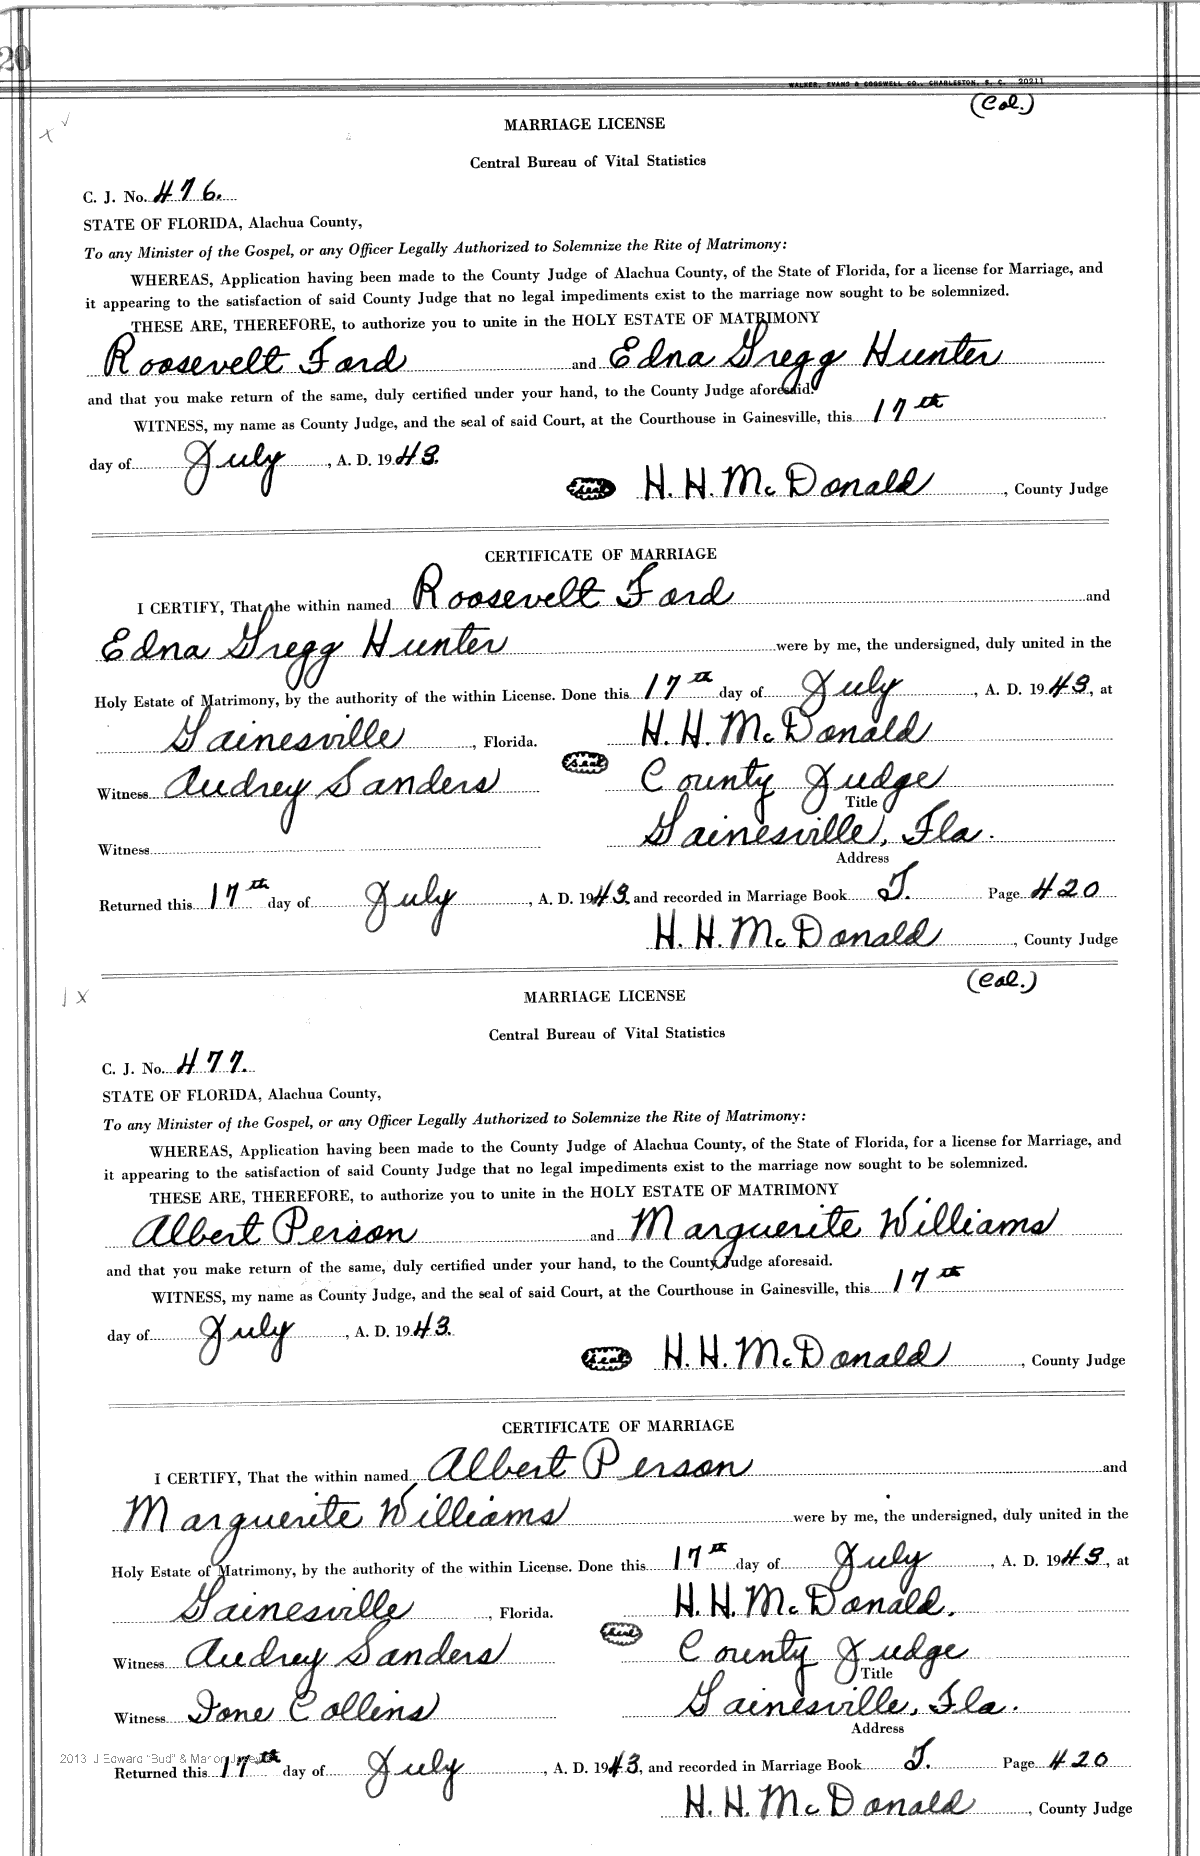 20
WALKER, EVANS & COGSWELL CO., CHARLESTON, S. C. 20211
(Col.)
MARRIAGE LICENSE
Central Bureau of Vital Statistics
C. J. No. 476.
STATE OF FLORIDA, Alachua County,
To any Minister of the Gospel, or any Officer Legally Authorized to Solemnize the Rite of Matrimony:
WHEREAS, Application having been made to the County Judge of Alachua County, of the State of Florida, for a license for Marriage, and
it appearing to the satisfaction of said County Judge that no legal impediments exist to the marriage now sought to be solemnized.
THESE ARE, THEREFORE, to authorize you to unite in the HOLY ESTATE OF MATRIMONY
Roosevelt Ford and Edna Gregg Hunter
and that you make return of the same, duly certified under your hand, to the County Judge aforesaid.
WITNESS, my name as County Judge, and the seal of said Court, at the Courthouse in Gainesville, this 17th
day of July, A. D. 1943.
seal H. H. McDonald, County Judge
CERTIFICATE OF MARRIAGE
I CERTIFY, That the within named Roosevelt Ford and
Edna Gregg Hunter were by me, the undersigned, duly united in the
Holy Estate of Matrimony, by the authority of the within License. Done this 17th day of July, A. D. 1943, at
Gainesville, Florida. H. H. McDonald
seal
Witness Audrey Sanders County Judge
Title
Witness Gainesville, Fla.
Address
Returned this 17th day of July, A. D. 1943, and recorded in Marriage Book T. Page 420
H. H. McDonald, County Judge
(Col.)
MARRIAGE LICENSE
Central Bureau of Vital Statistics
C. J. No. 477.
STATE OF FLORIDA, Alachua County,
To any Minister of the Gospel, or any Officer Legally Authorized to Solemnize the Rite of Matrimony:
WHEREAS, Application having been made to the County Judge of Alachua County, of the State of Florida, for a license for Marriage, and
it appearing to the satisfaction of said County Judge that no legal impediments exist to the marriage now sought to be solemnized.
THESE ARE, THEREFORE, to authorize you to unite in the HOLY ESTATE OF MATRIMONY
Albert Person and Marguerite Williams
and that you make return of the same, duly certified under your hand, to the County Judge aforesaid.
WITNESS, my name as County Judge, and the seal of said Court, at the Courthouse in Gainesville, this 17th
day of July, A. D. 1943.
seal H. H. McDonald, County Judge
CERTIFICATE OF MARRIAGE
I CERTIFY, That the within named Albert Person and
Marguerite Williams were by me, the undersigned, duly united in the
Holy Estate of Matrimony, by the authority of the within License. Done this 17th day of July, A. D. 1943, at
Gainesville, Florida. H. H. McDonald.
seal
Witness Audrey Sanders County Judge
Title
Witness Ione Collins Gainesville, Fla.
Address
2013 J Edward "Bud" & Marion
Returned this 17th day of July, A. D. 1943, and recorded in Marriage Book T. Page 420
H. H. McDonald, County Judge